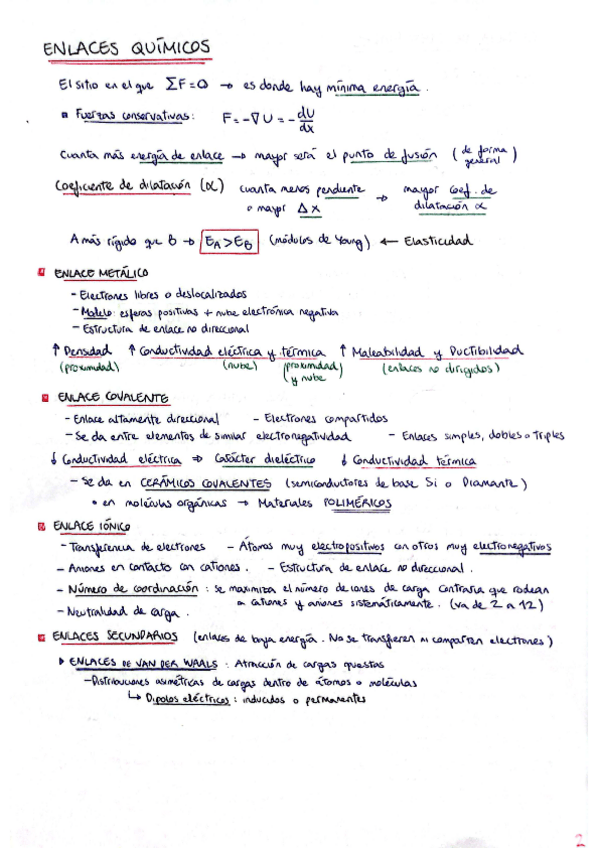 ENLACES QUÍMICOS
El sitio en el que ΣF=0 → es donde hay mínima energía.
Fuerzas conservativas: F = -∇U = - dU/dx
Cuanta más energía de enlace → mayor será el punto de fusión (de forma general)
Coeficiente de dilatación (α) cuanta menos pendiente o mayor Δx → mayor coef. de dilatación α
A más rígido que B → EA > EB (módulos de Young) ← Elasticidad
ENLACE METÁLICO
- Electrones libres o deslocalizados
- Modelo: esferas positivas + nube electrónica negativa
- Estructura de enlace no direccional
↑ Densidad ↑ Conductividad eléctrica y térmica ↑ Maleabilidad y Ductibilidad
(proximidad) (nube) (proximidad y nube) (enlaces no dirigidos)
ENLACE COVALENTE
- Enlace altamente direccional - Electrones compartidos
- Se da entre elementos de similar electronegatividad - Enlaces simples, dobles o triples
↓ Conductividad eléctrica → Carácter dieléctrico ↓ Conductividad térmica
- Se da en CERÁMICOS COVALENTES (semiconductores de base Si o Diamante)
• en moléculas orgánicas → Materiales POLIMÉRICOS
ENLACE IÓNICO
- Transferencia de electrones - Átomos muy electropositivos con otros muy electronegativos
- Aniones en contacto con cationes. - Estructura de enlace no direccional.
- Número de coordinación: se maximiza el número de iones de carga contraria que rodean
a cationes y aniones sistemáticamente. (va de 2 a 12)
- Neutralidad de carga.
ENLACES SECUNDARIOS (enlaces de baja energía. No se transfieren ni comparten electrones)
ENLACES DE VAN DER WAALS: Atracción de cargas opuestas
- Distribuciones asimétricas de cargas dentro de átomos o moléculas
↳ Dipolos eléctricos: inducidos o permanentes
2